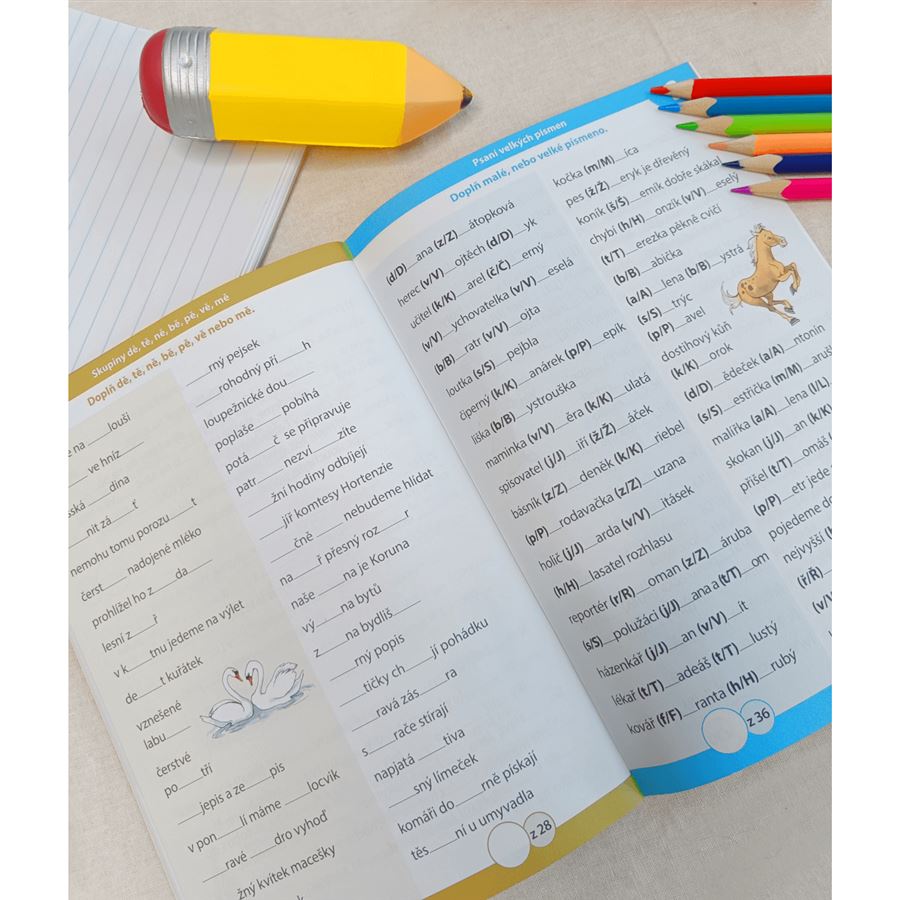 Skupiny dě, tě, ně, bě, pě, vě, mě
Doplň dě, tě, ně, bě, pě, vě nebo mě.
na ___louši
___ ve hníz___
___dina
___nit zá___ť
nemohu tomu porozu___t
čerst___ nadojené mléko
prohlížel ho z___da___
lesní z___ř
v k___tnu jedeme na výlet
de___t kuřátek
vznešené
labu___
čerstvé
po___tří
___jepis a ze___pis
v pon___lí máme ___locvik
___ravé ___dro vyhoď
___žný kvítek macešky
___rný pejsek
___rohodný pří___h
loupežnické dou___
poplaše___ pobíhá
potá___č se připravuje
patr___ nezví___zíte
___žní hodiny odbíjejí
___jíř komtesy Hortenzie
___čné ___nebudeme hlídat
na___ř přesný roz___r
naše ___na je Koruna
vý___na bytů
z___na bydliš___
___rný popis
___tičky ch___jí pohádku
___ravá zás___ra
s___rače stírají
napjatá ___tiva
___sný límeček
komáři do___rné pískají
těs___ní u umyvadla
z 28
Psaní velkých písmen
Doplň malé, nebo velké písmeno.
(d/D)___ana (z/Z)___átopková
herec (v/V)___ojtěch (d/D)___yk
učitel (k/K)___arel (č/Č)___erný
(v/V)___ychovatelka (v/V)___eselá
(b/B)___ratr (v/V)___ojta
loutka (s/S)___pejbla
čiperný (k/K)___anárek (p/P)___epík
liška (b/B)___ystrouška
maminka (v/V)___ěra (k/K)___ulatá
spisovatel (j/J)___iří (ž/Ž)___áček
básník (z/Z)___deněk (k/K)___riebel
(p/P)___rodavačka (z/Z)___uzana
holič (j/J)___arda (v/V)___itásek
(h/H)___lasatel rozhlasu
reportér (r/R)___oman (z/Z)___áruba
(s/S)___polužáci (j/J)___ana a (t/T)___om
házenkář (j/J)___an (v/V)___ít
lékař (t/T)___adeáš (t/T)___lustý
kovář (f/F)___ranta (h/H)___rubý
kočka (m/M)___ica
pes (ž/Ž)___eryk je dřevěný
koník (š/Š)___emík dobře skákal
chybí (h/H)___onzík (v/V)___eselý
(t/T)___erezka pěkně cvičí
(b/B)___abička
(a/A)___lena (b/B)___ystrá
(s/S)___trýc
(p/P)___avel
dostihový kůň
(k/K)___orok
(d/D)___ědeček (a/A)___ntonín
(s/S)___estřička (m/M)___aruš
malířka (a/A)___lena (l/L)
skokan (j/J)___an (k/K)
přišel (t/T)___omáš
(p/P)___etr jede
pojedeme do
nejvyšší
(ř/Ř)
(v/V)
z 36